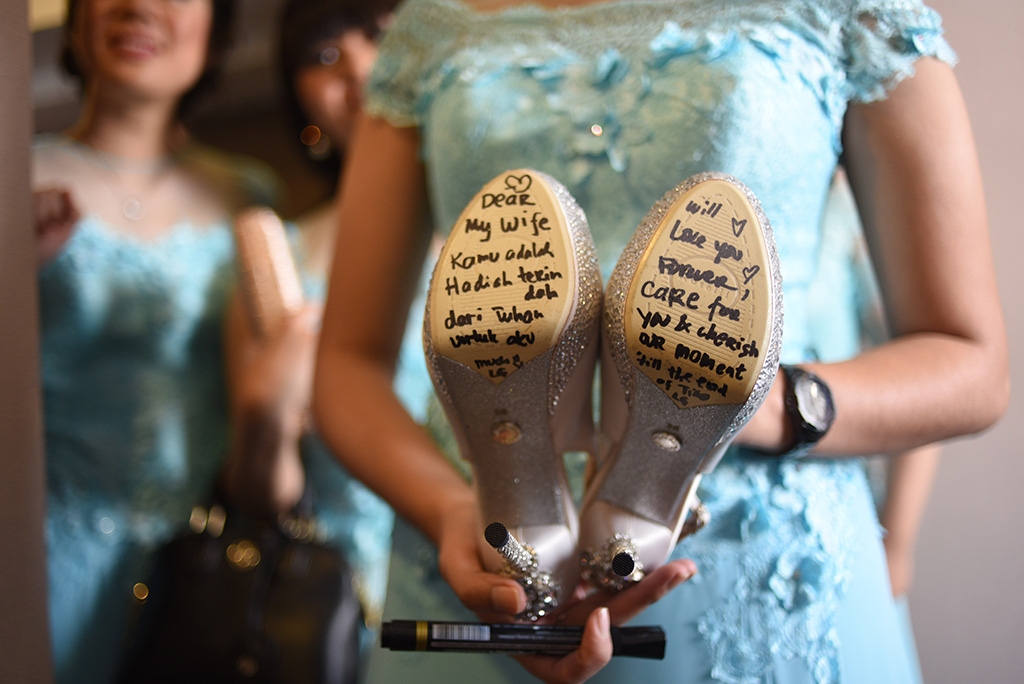 Dear
My Wife
Kamu adalah
Hadiah terin
dah
dari Tuhan
untuk aku
will
Love you
Forever,
Care for
you & cherish
our moment
'till the end
of Time